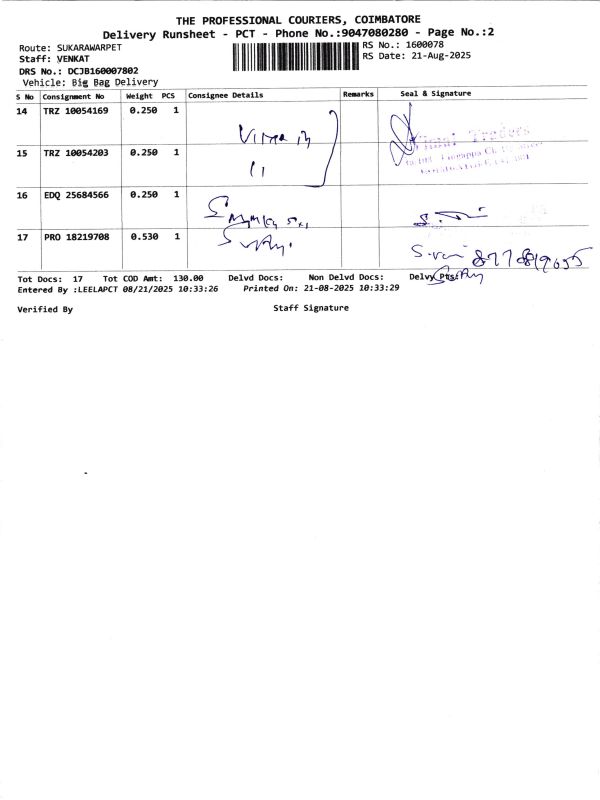 THE PROFESSIONAL COURIERS, COIMBATORE
Delivery Runsheet - PCT - Phone No.:9047080280 - Page No.:2
Route: SUKARAWARPET
RS No.: 1600078
Staff: VENKAT
RS Date: 21-Aug-2025
DRS No.: DCJB160007802
Vehicle: Big Bag Delivery
S No Consignment No Weight PCS Consignee Details Remarks Seal & Signature
14 TRZ 10054169 0.250 1
15 TRZ 10054203 0.250 1
16 EDQ 25684566 0.250 1
17 PRO 18219708 0.530 1
Tot Docs: 17 Tot COD Amt: 130.00 Delvd Docs: Non Delvd Docs: Delvy Pts:
Entered By :LEELAPCT 08/21/2025 10:33:26 Printed On: 21-08-2025 10:33:29
Verified By Staff Signature